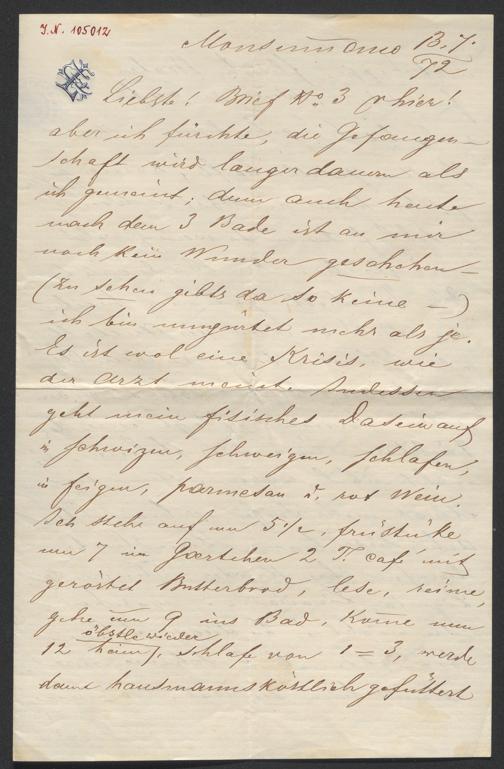 J. N. 105012
Monsummano 13. 7.
72
Liebste! Brief No 3 hier!
aber ich fürchte, die Gefangen-
schaft wird langer dauern als
ich gemeint; denn auch heute
nach dem 3 Bade ist an mir
noch kein Wunder geschehen -
(zu sehen gibts da so keine -)
ich bin mehr als je.
Es ist wol eine Krisis, wie
der Arzt meint. Indessen
geht mein fisisches Dasein auf
in schwizen, schweigen, schlafen,
in feigen, parmesan u. rot Wein.
Ich stehe auf um 5 1/2, früstüke
um 7 im Gärtchen 2 T. café mit
geröstet Butterbrod, lese, reime,
gehe um 9 ins Bad, kome um
wieder
12 heim, schlafe von 1 = 3, werde
dann hausmannsköstlich gefüttert